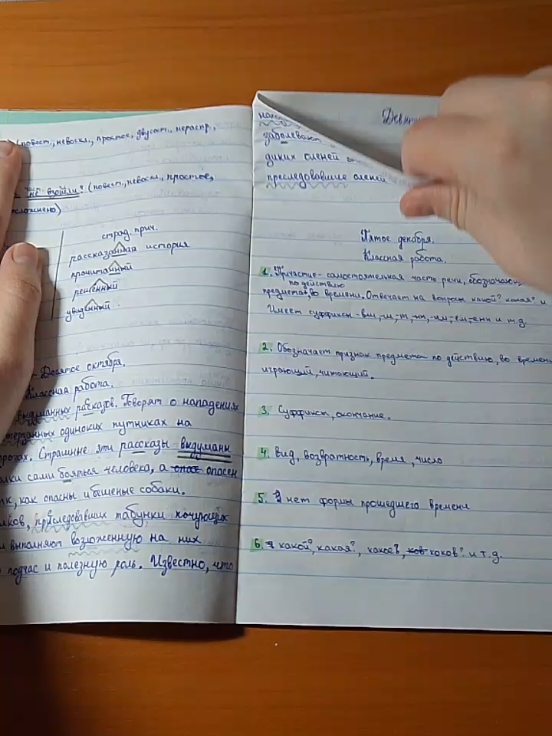 повест., невоскл., простое, двусост., нераспр.,
не взошли? (повест., невоскл., простое,
страд. прич.
рассказанная история
прочитанный
решённый
увиденный
Десятое октября.
Классная работа.
выдуманных рассказов. Говорят о нападениях
одиноких путниках на
Страшные эти рассказы выдуманы
сами бояться человека, а опасен
как опасны и бешеные собаки.
преследовавших табунки кочующих
выполняют возложенную на них
подчас и полезную роль. Известно, что
заболевают
диких оленей
преследовавшие оленей
Пятое декабря.
Классная работа.
1. Причастие - самостоятельная часть речи, обозначающ
по действию
предмета во времени. Отвечает на вопросы какой? какая? и
Имеет суффиксы - вш, ш, т, нн, ем, им, енн и т.д.
2. Обозначает признак предмета по действию, во времени
играющий, читающий.
3. Суффиксы, окончание.
4. вид, возвратность, время, число
5. нет формы прошедшего времени
6. какой?, какая?, какое?, каков? и т.д.